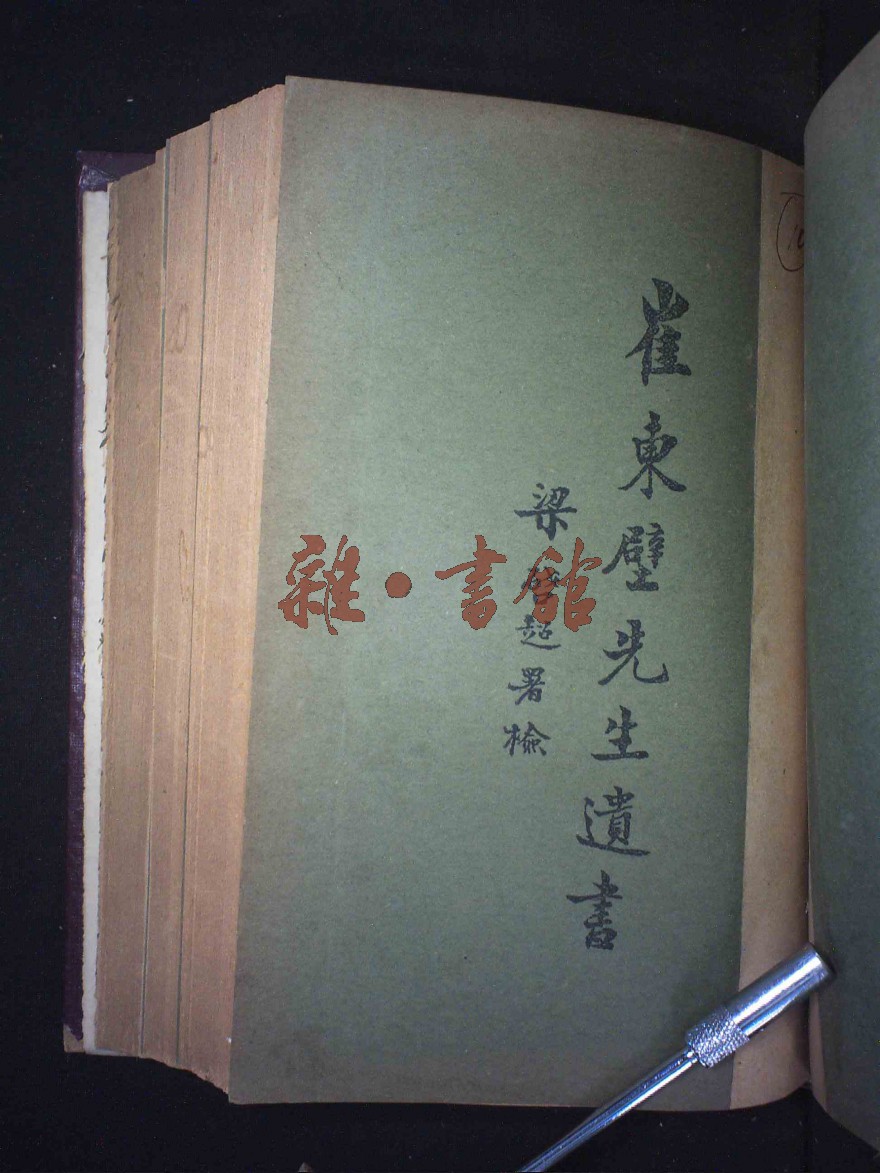 崔東壁先生遺書
梁啓超署檢
雜·書館